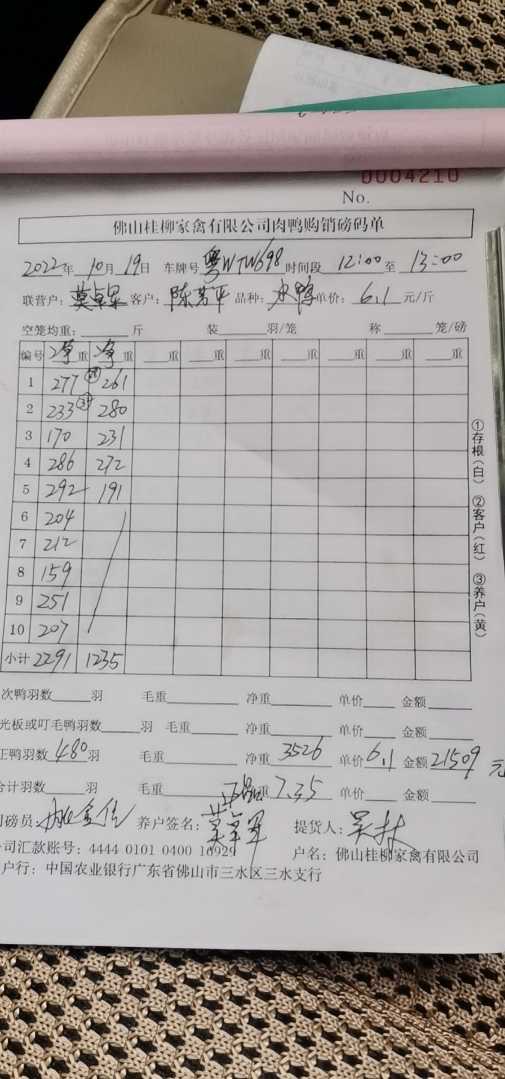 0004210
No.
佛山桂柳家禽有限公司肉鸭购销磅码单
2022年 10月 19日 车牌号 粤WTW698 时间段 12:00 至 13:00
联营户: 莫卓军 客户: 陈芳平 品种: 水鸭 单价: 6.1 元/斤
空笼均重: 斤 装 羽/笼 称 笼/磅
编号 净重 净重 重 重 重 重 重 重
1 277 261
2 233 280
3 170 231
4 286 272
5 292 191
6 204
7 212
8 159
9 251
10 207
小计 2291 1235
①存根(白) ②客户(红) ③养户(黄)
次鸭羽数 羽 毛重 净重 单价 金额
光板或叮毛鸭羽数 羽 毛重 净重 单价 金额
正鸭羽数 480 羽 毛重 净重 3526 单价 6.1 金额 21509 元
合计羽数 羽 毛重 净重 7.35 单价 金额
司磅员: 养户签名: 莫卓军 提货人:
公司汇款账号: 4444 0101 0400 16929 户名: 佛山桂柳家禽有限公司
户行: 中国农业银行广东省佛山市三水区三水支行